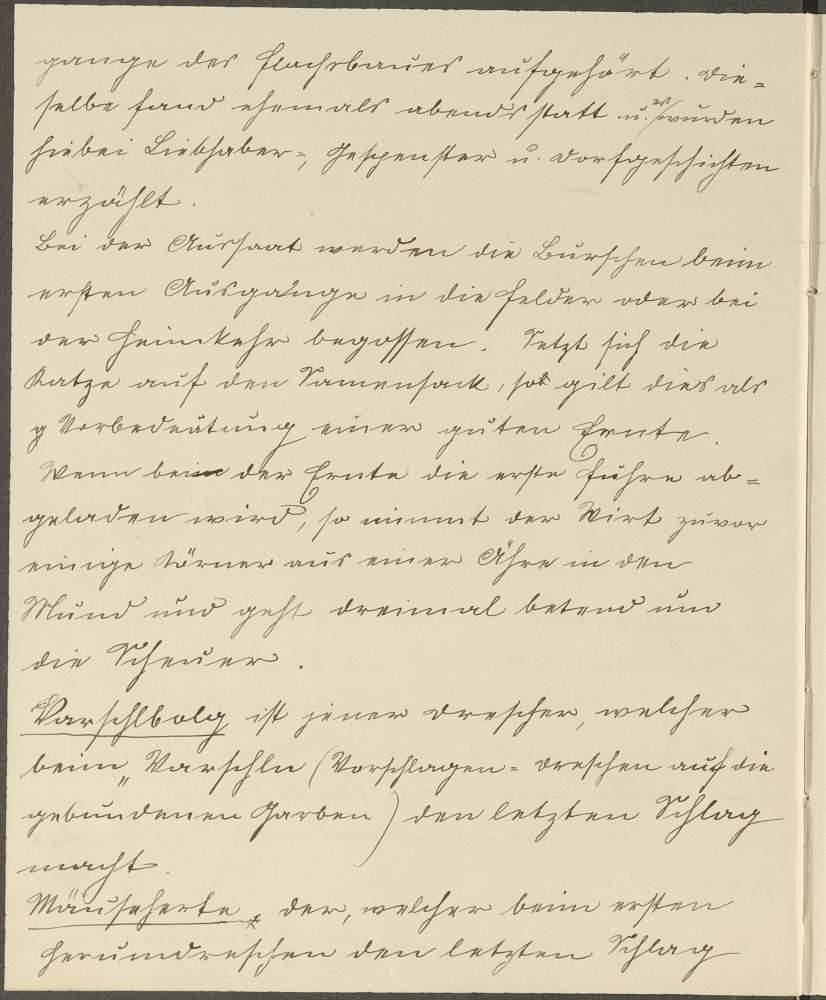 gange des Flachsbaues aufgehört. Die=
selbe fand ehemals abends statt u. es wurden
hiebei Liebhaber=, Gespenster u. Dorfgeschichten
erzählt.
Bei der Aussaat werden die Burschen beim
ersten Ausgange in die Felder oder bei
der Heimkehr begossen. Setzt sich die
Katze auf den Samensack, so gilt dies als
Vorbedeutung einer guten Ernte.
Wenn bei der Ernte die erste Fuhre ab=
geladen wird, so nimmt der Wirt zuvor
einige Körner aus einer Ähre in den
Mund und geht dreimal betend um
die Scheuer.
Varschlbolg ist jener Drescher, welcher
beim „Varschln (Vorschlagen = Dreschen auf die
gebundenen Garben) den letzten Schlag
macht.
der, welcher beim ersten
Herumdreschen den letzten Schlag